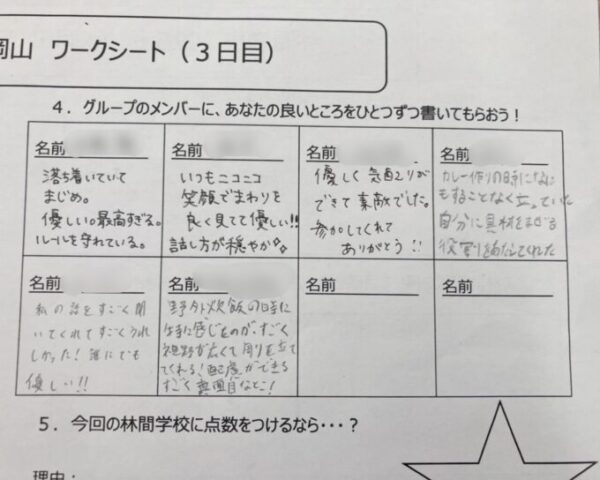 岡山 ワークシート（３日目）
４．グループのメンバーに、あなたの良いところをひとつずつ書いてもらおう！
名前
落ち着いていて
まじめ。
優しい。最高すぎる。
ルールを守れている。
名前
いつもニコニコ
笑顔でまわりを
良く見てて優しい!!
話し方が穏やか
名前
優しく気配りが
できて素敵でした。
参加してくれて
ありがとう!!
名前
カレー作りの時になに
もすることなく立っていた
自分に具材をまぜる
役割をあたえてくれた
名前
私の話をすごく聞
いてくれてすごくうれ
しかった！誰にでも
優しい!!
名前
野外炊飯の時に
特に感じたのが、すごく
視野が広くて周りを立て
てくれる！配慮ができる
すごく真面目なとこ！
名前
名前
５．今回の林間学校に点数をつけるなら・・・？
理由：